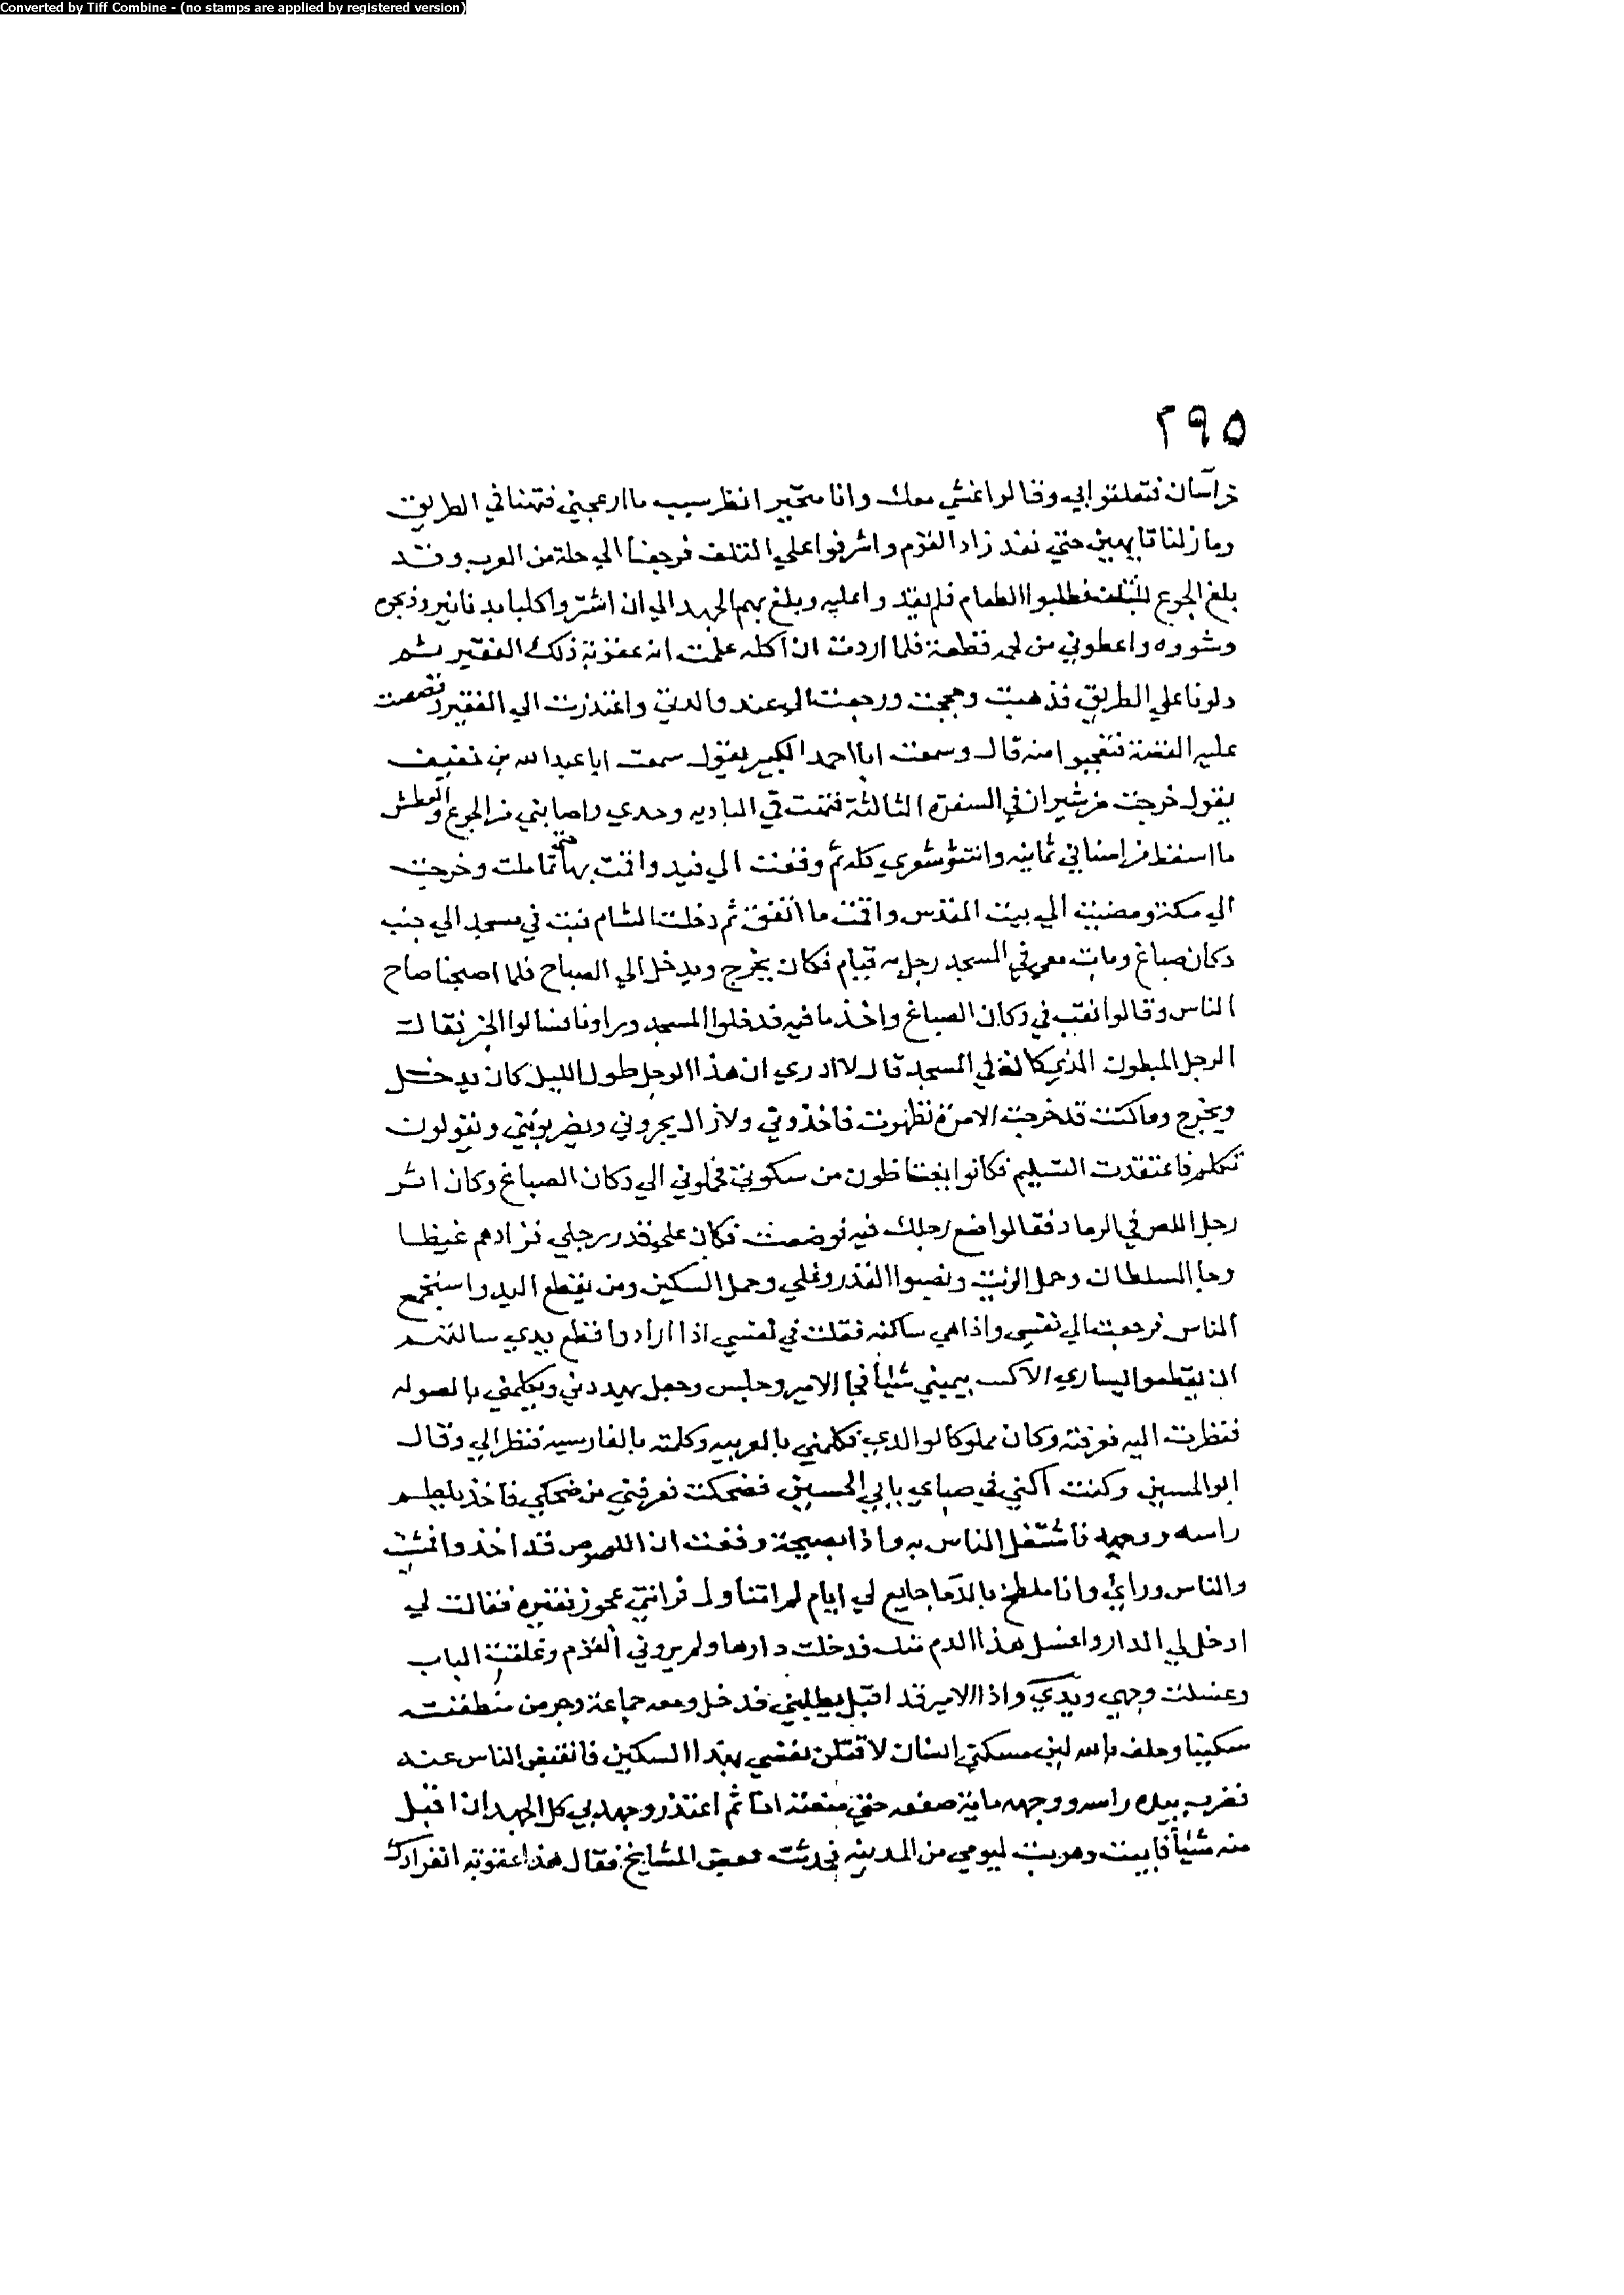 Converted by Tiff Combine - (no stamps are applied by registered version)
٢٩٥
خراسان فتعلقوا بي وقالوا نمشي معك وانا متحير انظر سبب ما ازعجني فتهنا في الطريق
وما زلنا تايهين حتي نفد زاد القوم واشرفوا علي التلف فرجعنا الي حلة من العرب وقد
بلغ الجوع فطلبوا الطعام فلم يقدروا عليه وبلغ بهم الجهد الي ان اشتروا كلبا بدنانير وذبحوه
وشووه واعطوني من لحمه قطعة فلما اردت ان اكله علمت انه عقوبة ذلك الفقير ثم
دلونا علي الطريق فذهبت وحججت ورجعت الي عند والدتي واعتذرت الي الفقير وقصصت
عليه القصة فتعجبوا منه قال وسمعت ابا احمد الكبير يقول سمعت ابا عبد الله بن خفيف
يقول خرجت من شيراز في السفرة الثالثة فتهت في الباديه وحدي واصابني من الجوع والعطش
ما اسقط من اسناني ثمانيه وانتثر شعري كله ثم وقعت الي فيد واقمت بها حتي تماثلت وخرجت
الي مكة ومضيت الي بيت المقدس واقمت ما اتفق ثم دخلت الشام فبت في مسجد الي جنب
دكان صباغ وبات معي في المسجد رجل به قيام فكان يخرج ويدخل الي الصباح فلما اصبحنا صاح
الناس وقالوا نقب في دكان الصباغ واخذ ما فيه فدخلوا المسجد وراونا فسالوا الخبر فقال
الرجل المبطون الذي كان في المسجد قال لا ادري ان هذا الرجل طول الليل كان يدخل
ويخرج وما كنت قد خرجت الا مرة تطهرت فاخذوني ولازال يجروني ويضربونني ويقولون
تكلم فاعتقدت التسليم فكانوا يغتاظون من سكوني فحملوني الي دكان الصباغ وكان اثر
رجل اللص في الرماد فقالوا ضع رجلك فيه فوضعت فكان علي قدر رجلي فزادهم غيظا
وجا السلطان وحمل الزيت ونصبوا القدر وغلي وحمل السكين ومن يقطع اليد واستجمع
الناس فرجعت الي نفسي واذا هي ساكنه فقلت في نفسي اذا ارادوا قطع يدي سالتهم
ان يقطعوا يساري لاكتب بيميني شيئا فجا الامير وجلس وجعل يهددني ويكلمني بالصوله
فنظرت اليه فعرفته وكان مملوكا لوالدي فكلمني بالعربيه وكلمته بالفارسيه فنظر الي وقال
ابو الحسين وكنت اكني في صباي بابي الحسين فضحكت فعرفني من ضحكي فاخذ يلطم
راسه ووجهه فاشتغل الناس به واذا بصيحة وقعت ان اللصوص قد اخذوا فمشيت
والناس ورائي وانا ملطخ بالدما جايع لي ايام لم اتناول فراتني عجوز فقيره فقالت لي
ادخل لي الدار واغسل هذا الدم عنك فدخلت دارها ولم يروني القوم وغلقت الباب
وغسلت وجهي ويدي واذا الامير قد اقبل يطلبني فدخل ومعه جماعة وجر من منطقته
سكينا وحلف بالله لين مسكتي انسان لاقتلن نفسي بهذا السكين فانقبض الناس عنه
فضرب بيده راسه ووجهه ماية صفعه حتي منعته انا ثم اعتذر وجهد بي كل الجهد ان اقبل
منه شيئا فابيت وهربت ليومي من المدينه فحدثت بعض المشايخ فقال هذا عقوبة انفرادك